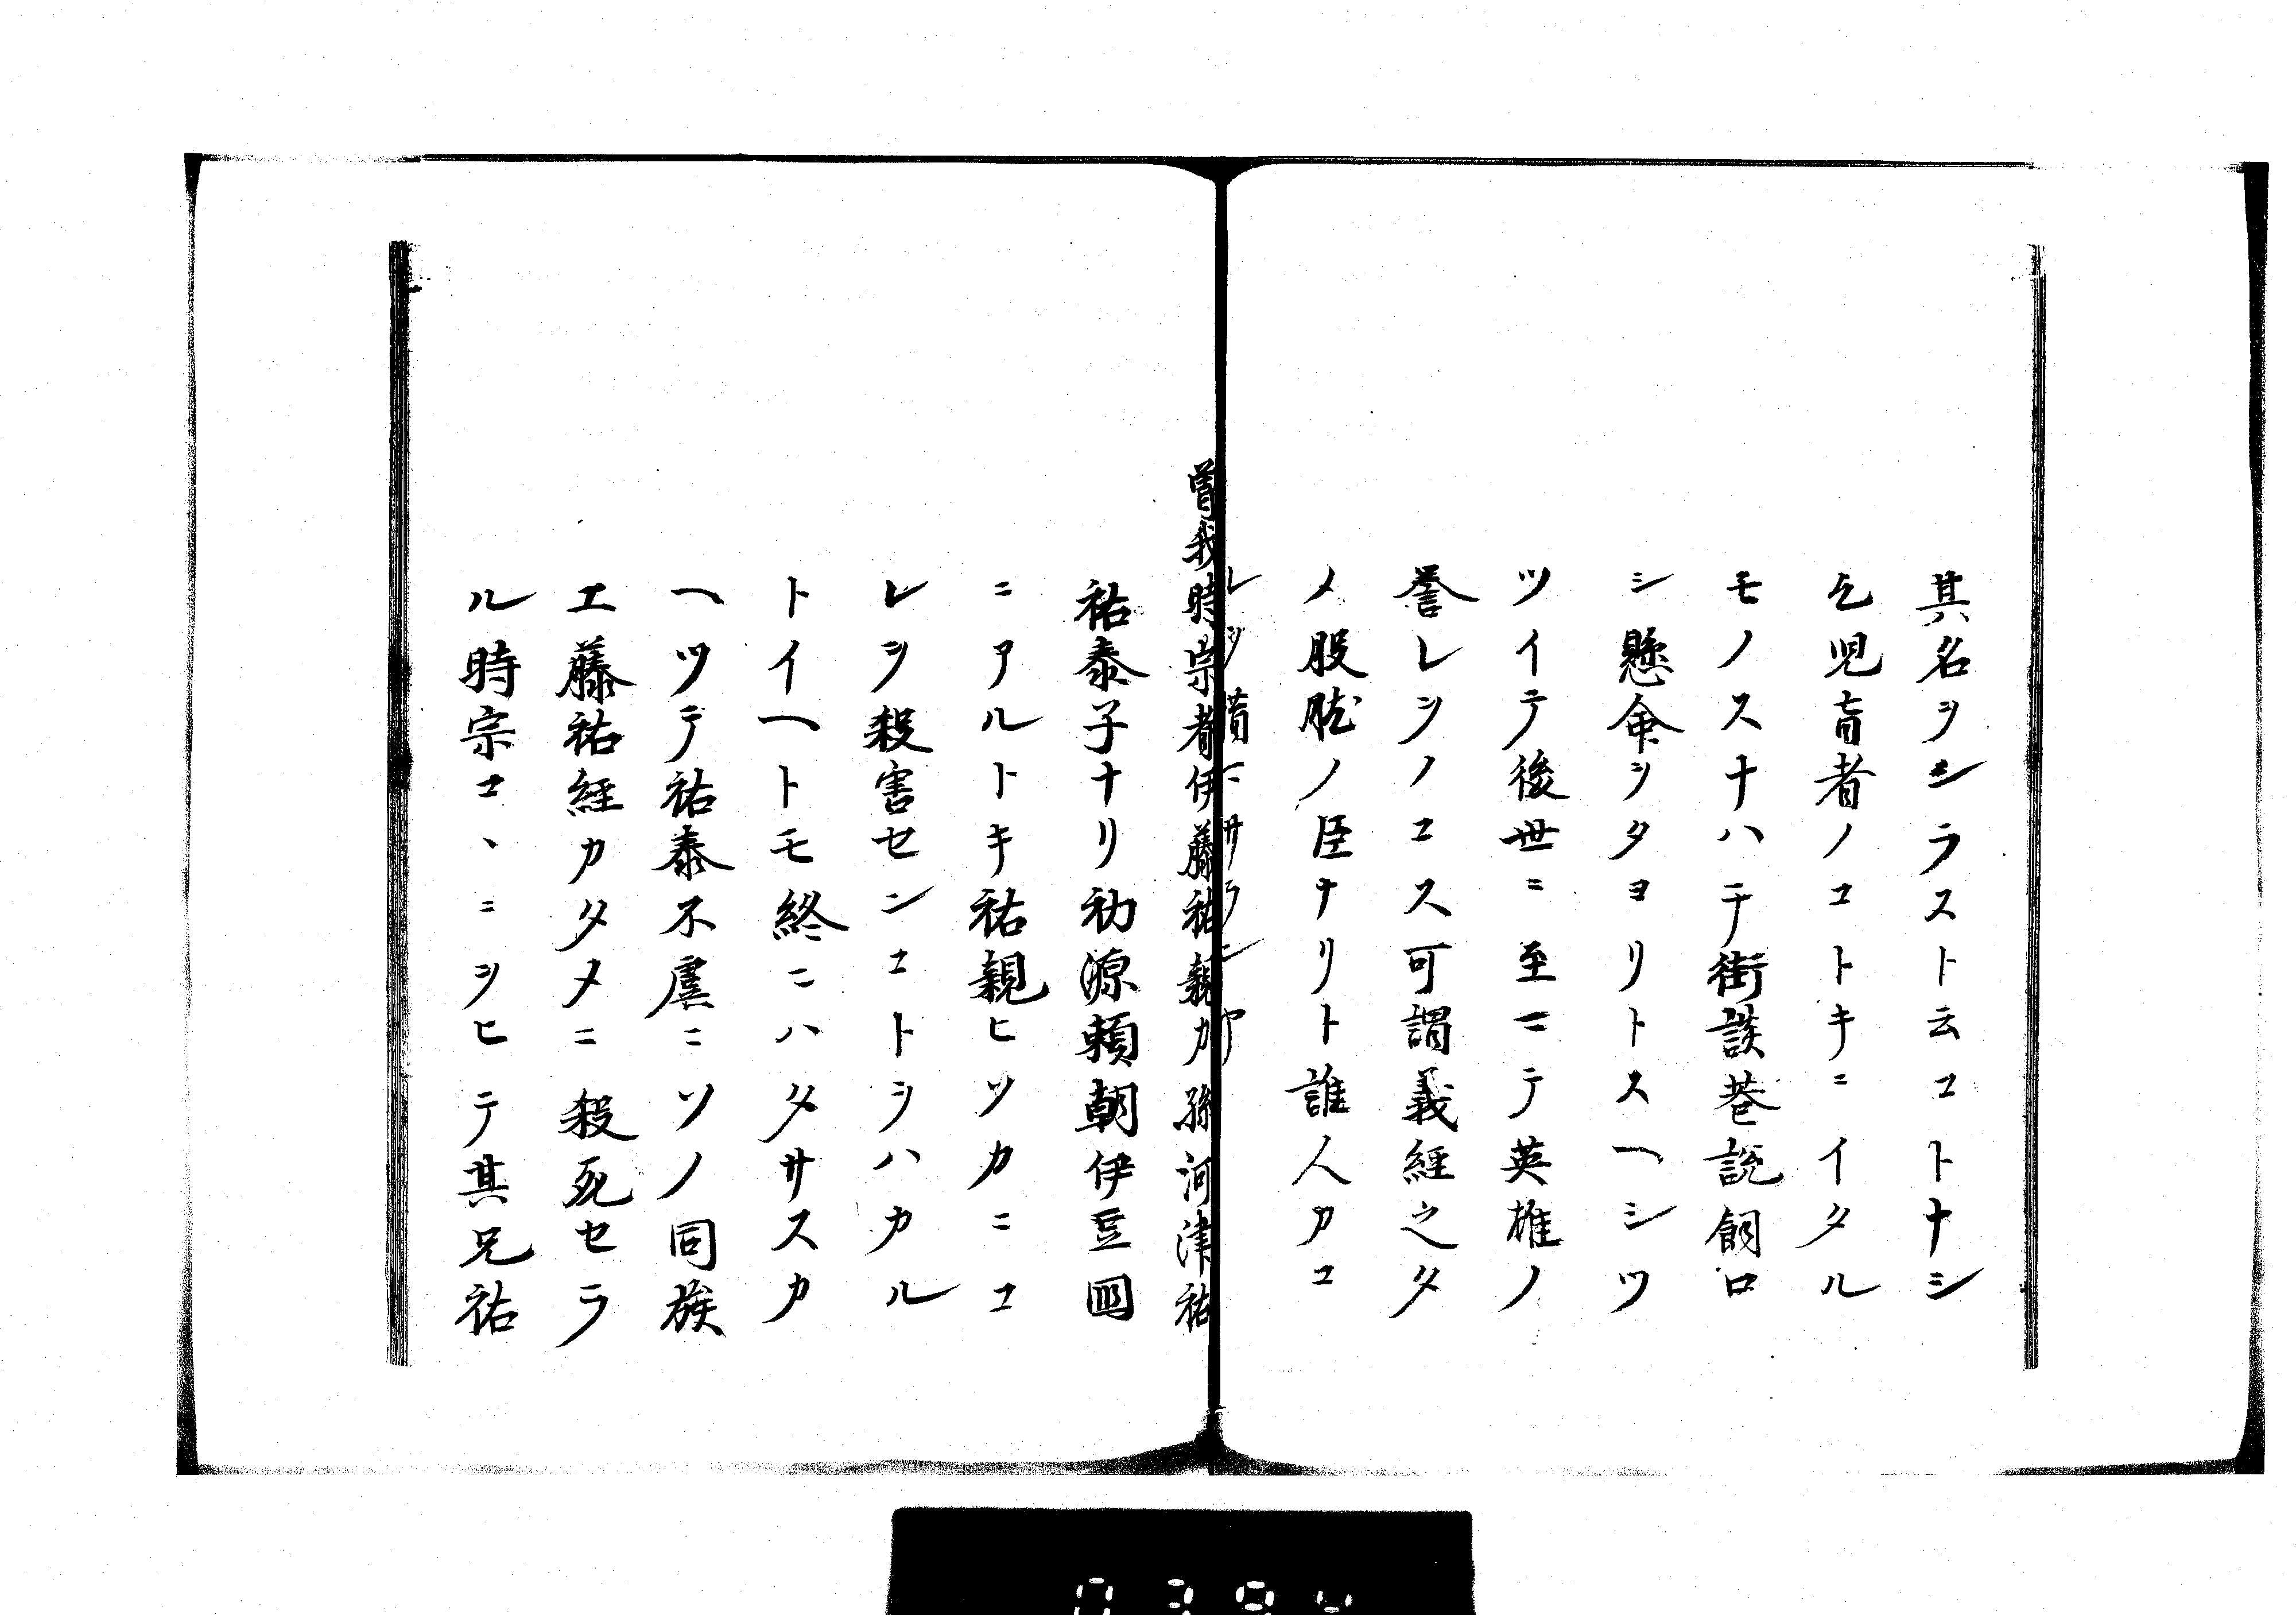 其名ヲシラスト云コトナシ
乞児盲者ノコトキニイタル
モノスナハチ街談巷説餬口
シ懸命ヲタヨリトスヘシツ
ツイテ後世ニ至ニテ英雄ノ
誉レヲノコス可謂義経之タ
ノ股肱ノ臣ナリト誰人カコ
レヲ
曽我時宗者伊藤祐親カ孫河津祐
祐泰子ナリ初源頼朝伊豆國
ニアルトキ祐親ヒソカニコ
レヲ殺害センコトヲハカル
トイヘトモ終ニハタサスカ
ヘツテ祐泰不虞ニソノ同族
工藤祐経カタメニ殺死セラ
ル時宗コヽニヲヒテ其兄祐